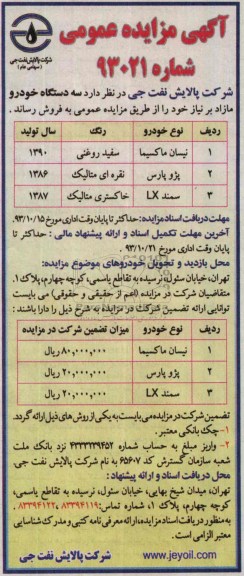 آگهی مزایده عمومی
شماره ۹۳۰۲۱
شرکت پالایش نفت جی
(سهامی عام)
شرکت پالایش نفت جی در نظر دارد سه دستگاه خودرو
مازاد بر نیاز خود را از طریق مزایده عمومی به فروش رساند.
ردیف نوع خودرو رنگ سال تولید
۱ نیسان ماکسیما سفید روغنی ۱۳۹۰
۲ پژو پارس نقره ای متالیک ۱۳۸۶
۳ سمند LX خاکستری متالیک ۱۳۸۷
مهلت دریافت اسناد مزایده: حداکثر تا پایان وقت اداری مورخ ۹۳/۱۰/۱۵.
آخرین مهلت تکمیل اسناد و ارائه پیشنهاد مالی: حداکثر تا
پایان وقت اداری مورخ ۹۳/۱۰/۲۱.
محل بازدید و تحویل خودروهای موضوع مزایده:
تهران، خیابان سئول، نرسیده به تقاطع یاسمی، کوچه چهارم، پلاک ۱.
متقاضیان شرکت در مزایده (اعم از حقیقی و حقوقی) می بایست
توانایی ارائه تضمین شرکت در مزایده به شرح ذیل را دارا باشند:
ردیف نوع خودرو میزان تضمین شرکت در مزایده
۱ نیسان ماکسیما ۸۰,۰۰۰,۰۰۰ ریال
۲ پژو پارس ۲۰,۰۰۰,۰۰۰ ریال
۳ سمند LX ۲۰,۰۰۰,۰۰۰ ریال
تضمین شرکت در مزایده می بایست به یکی از روش های ذیل ارائه گردد.
۱- چک بانکی معتبر.
۲- واریز مبلغ به حساب شماره ۴۳۳۳۲۳۹۴۵۲ نزد بانک ملت
شعبه سازمان گسترش کد ۶۵۶۰۷ به نام شرکت پالایش نفت جی.
محل دریافت اسناد و ارائه پیشنهاد:
تهران، میدان شیخ بهایی، خیابان سئول، نرسیده به تقاطع یاسمی،
کوچه چهارم، پلاک ۱، شماره تماس: ۸۳۳۹۴۱۱۹ ، ۸۳۳۹۴۱۲۲.
به منظور دریافت اسناد مزایده، ارائه معرفی نامه کتبی و مدرک شناسایی
معتبر الزامی است.
www.jeyoil.com شرکت پالایش نفت جی